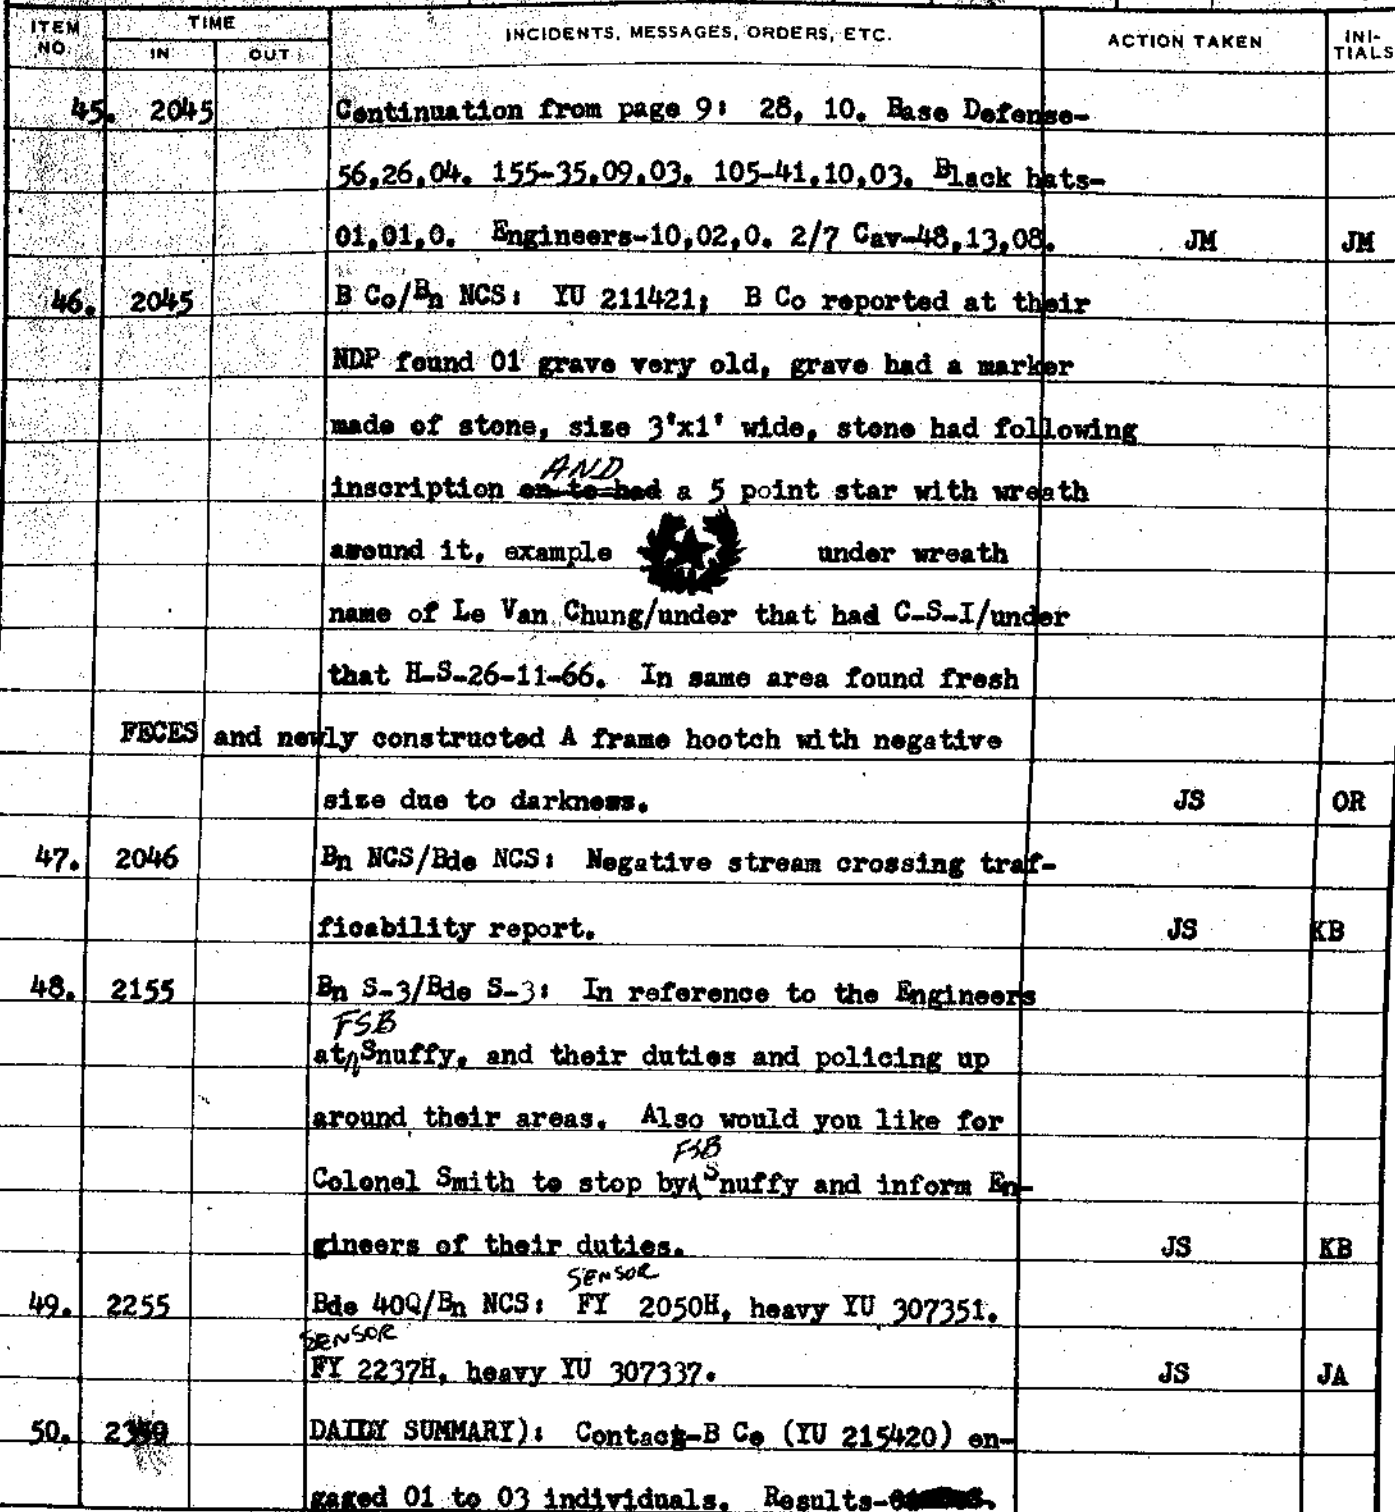 ITEM NO. TIME INCIDENTS, MESSAGES, ORDERS, ETC. ACTION TAKEN INI-TIALS
IN OUT
45. 2045 Continuation from page 9: 28, 10. Base Defense-
56,26,04. 155-35,09,03. 105-41,10,03. Black hats-
01,01,0. Engineers-10,02,0. 2/7 Cav-48,13,08. JM JM
46. 2045 B Co/Bn NCS: YU 211421; B Co reported at their
NDP found 01 grave very old, grave had a marker
made of stone, size 3'x1' wide, stone had following
AND
inscription on to had a 5 point star with wreath
around it, example under wreath
name of Le Van Chung/under that had C-S-I/under
that H-S-26-11-66. In same area found fresh
FECES and newly constructed A frame hootch with negative
size due to darkness. JS OR
47. 2046 Bn NCS/Bde NCS: Negative stream crossing traf-
ficability report. JS KB
48. 2155 Bn S-3/Bde S-3: In reference to the Engineers
FSB
at Snuffy, and their duties and policing up
around their areas. Also would you like for
FSB
Colonel Smith to stop by Snuffy and inform En-
gineers of their duties. JS KB
SENSOR
49. 2255 Bde 40Q/Bn NCS: FY 2050H, heavy YU 307351.
SENSOR
FY 2237H, heavy YU 307337. JS JA
50. DAILY SUMMARY): Contact-B Co (YU 215420) en-
gaged 01 to 03 individuals. Results-